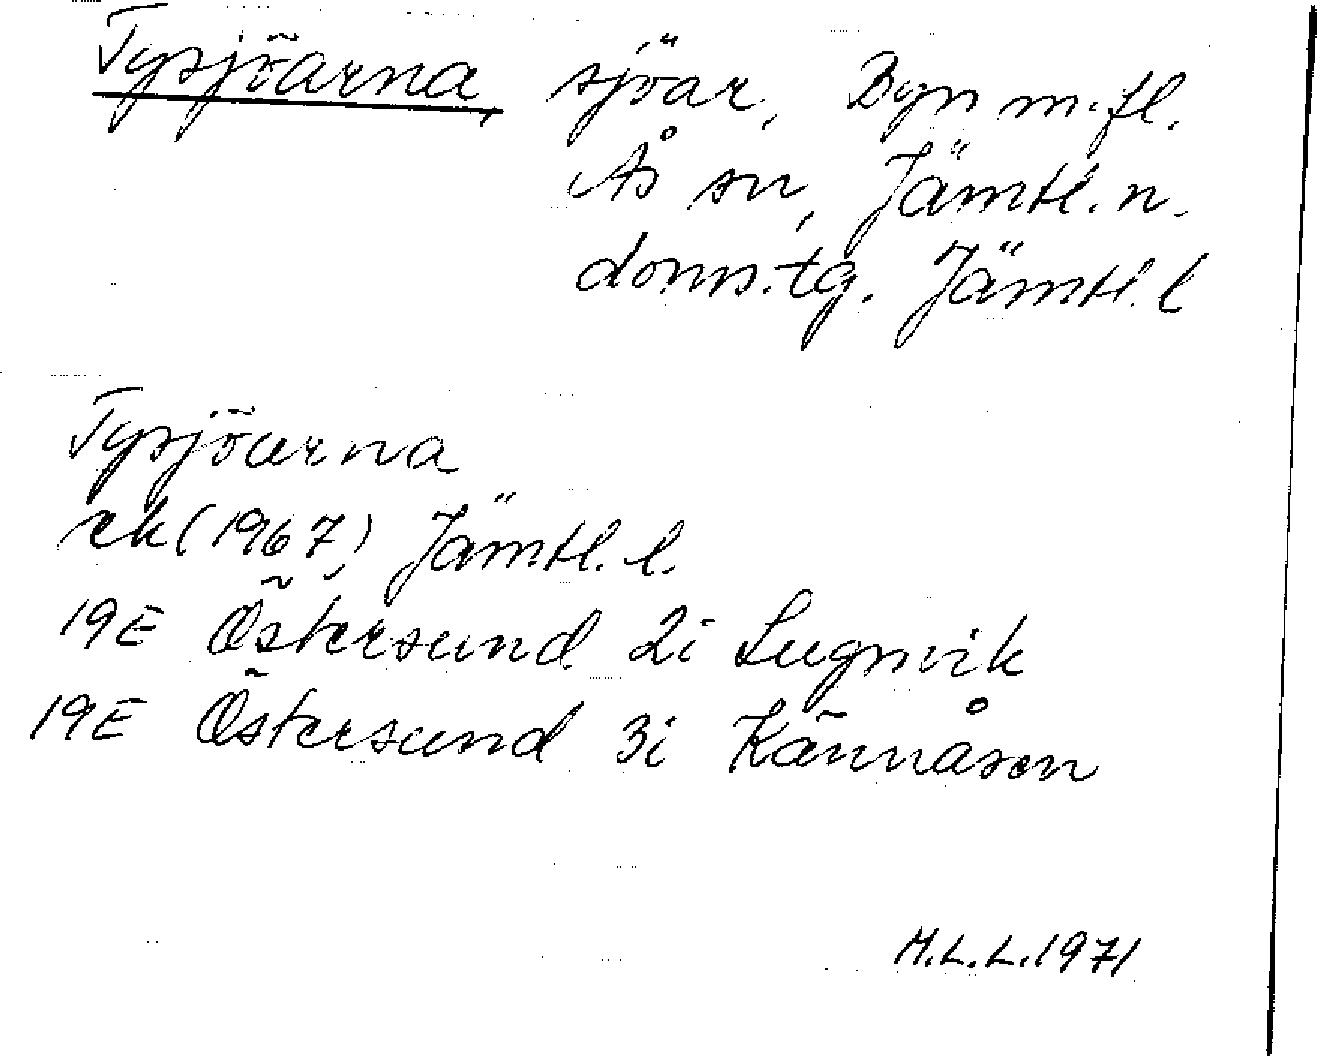 Tysjöarna, sjöar, Byn m.fl.
Ås sn, Jämtl. n.
doms.tg. Jämtl. l
Tysjöarna
ek (1967) Jämtl. l.
19E Östersund 2i Lugnvik
19E Östersund 3i Kännåsen
M.L.L. 1971